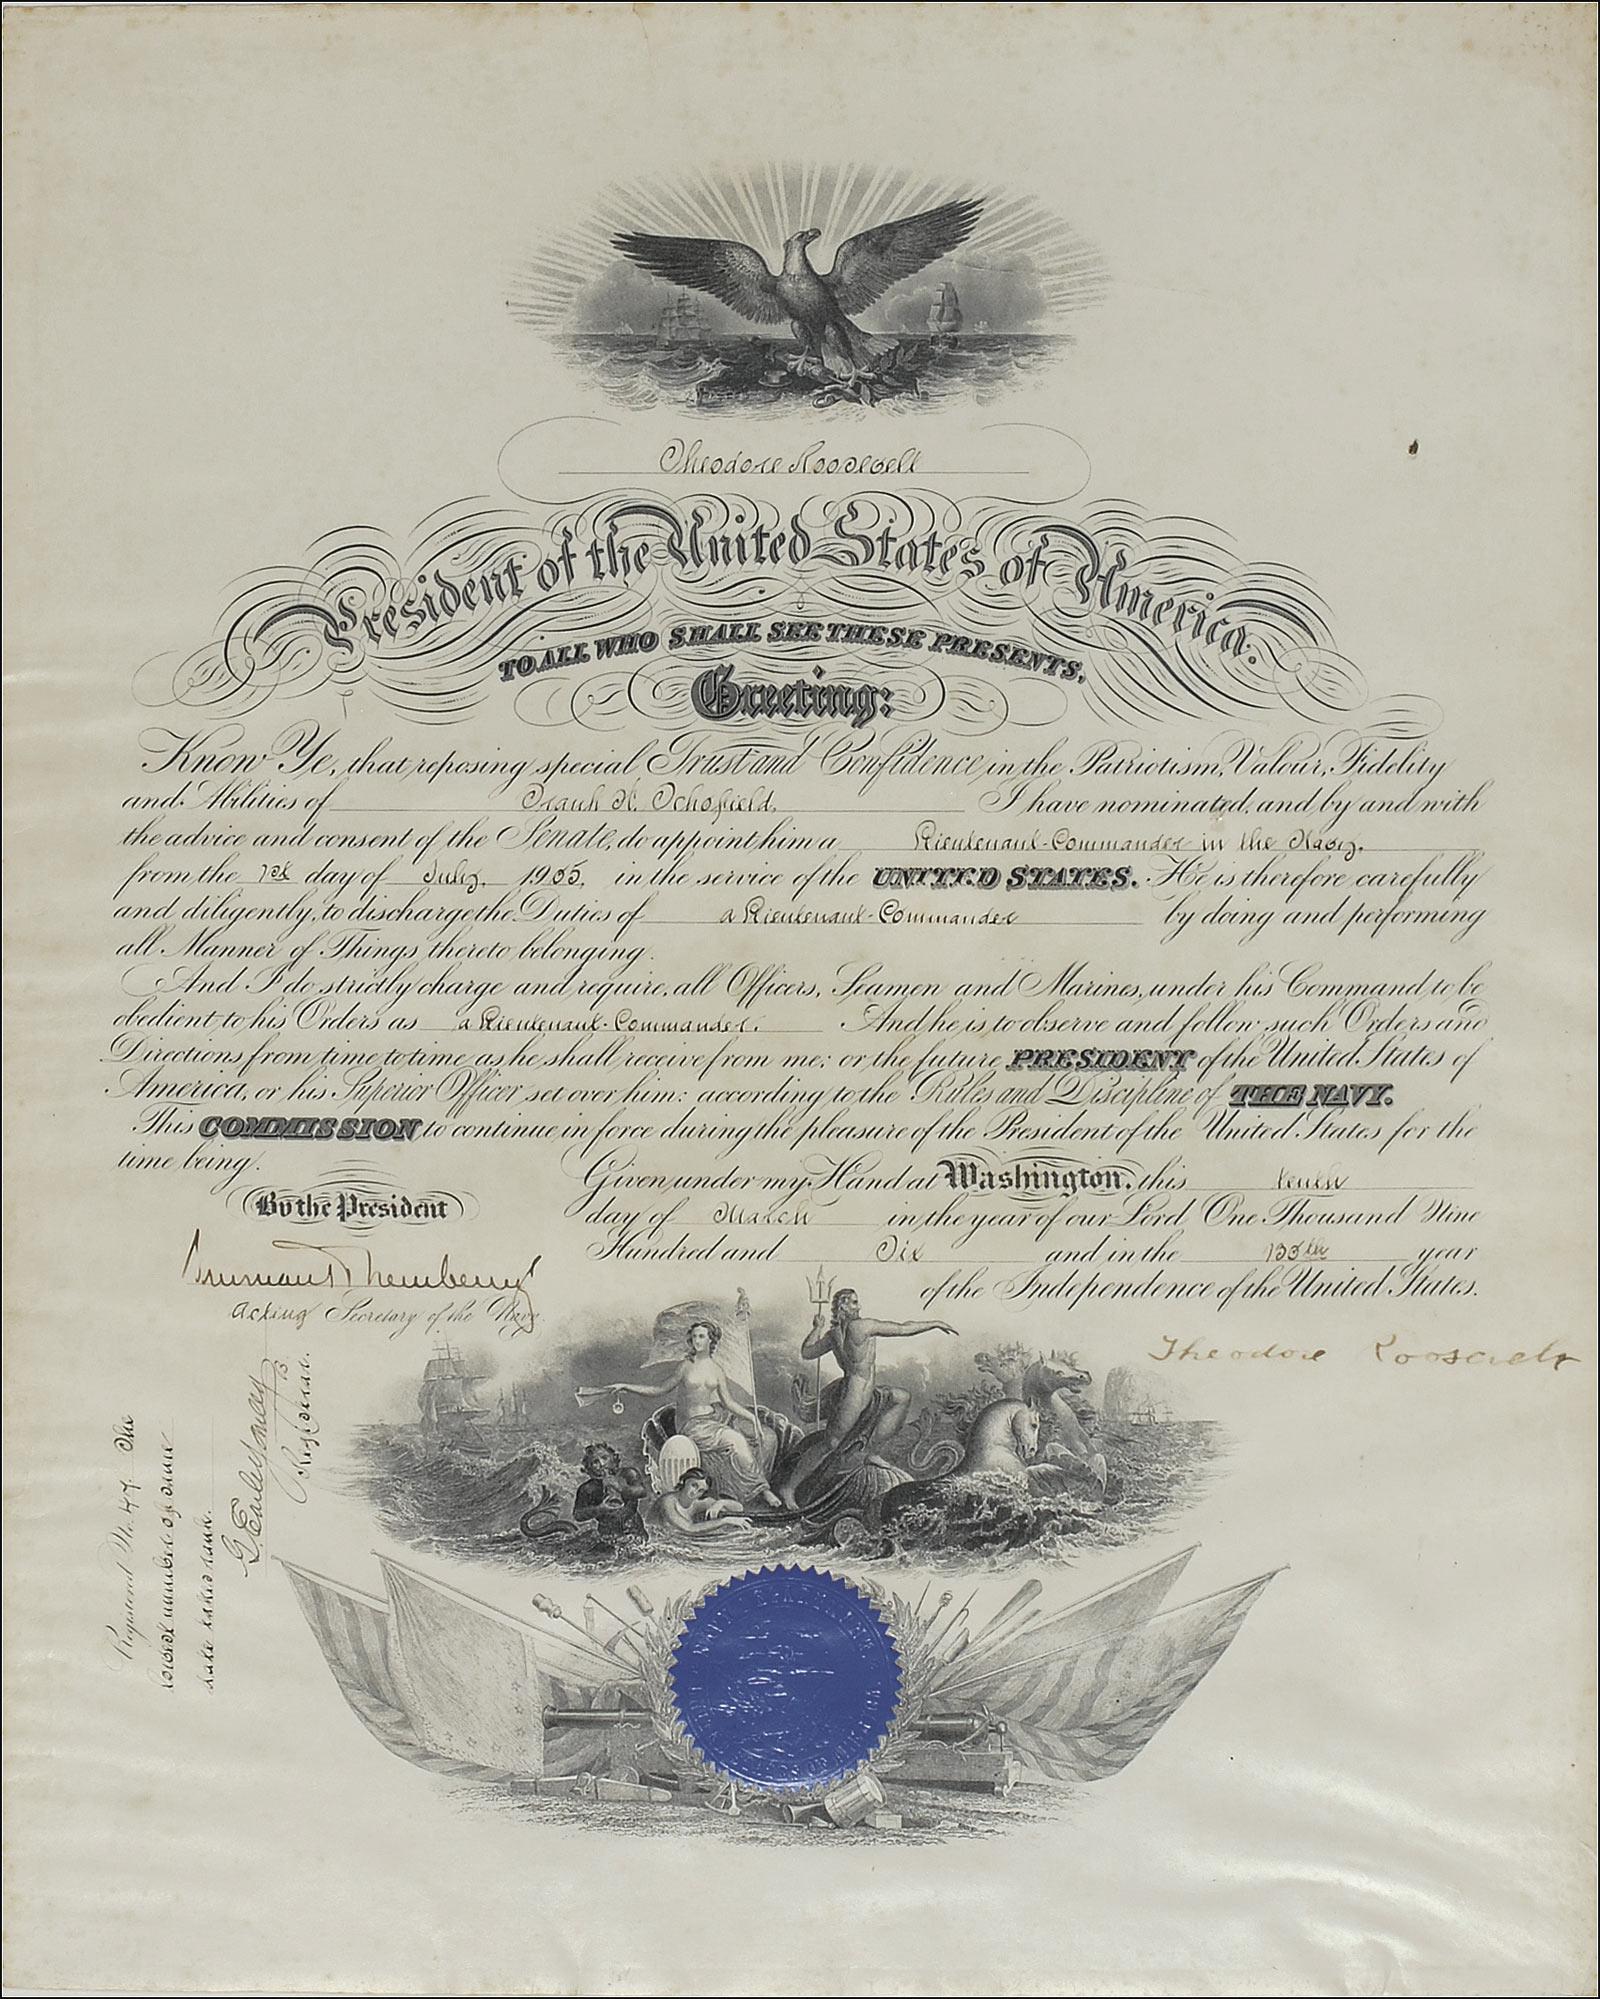 Theodore Roosevelt
President of the United States of America.
TO ALL WHO SHALL SEE THESE PRESENTS,
Greeting:
Know Ye, that reposing special Trust and Confidence in the Patriotism, Valour, Fidelity
and Abilities of Frank H. Schofield, I have nominated, and by and with
the advice and consent of the Senate, do appoint him a Lieutenant-Commander in the Navy,
from the 1st day of July, 1905, in the service of the UNITED STATES. He is therefore carefully
and diligently, to discharge the Duties of a Lieutenant-Commander by doing and performing
all Manner of Things thereto belonging.
And I do strictly charge and require, all Officers, Seamen and Marines, under his Command to be
obedient to his Orders as a Lieutenant-Commander. And he is to observe and follow such Orders and
Directions from time to time as he shall receive from me; or the future PRESIDENT of the United States of
America, or his Superior Officer set over him: according to the Rules and Discipline of THE NAVY.
This COMMISSION to continue in force during the pleasure of the President of the United States for the
time being.
Given under my Hand at Washington, this tenth
By the President
day of March in the year of our Lord One Thousand Nine
Hundred and Six and in the 130th year
of the Independence of the United States.
Truman H. Newberry
Acting Secretary of the Navy
Theodore Roosevelt
Registered No. 47. The
lowest number of same
date takes rank.
Registrar.